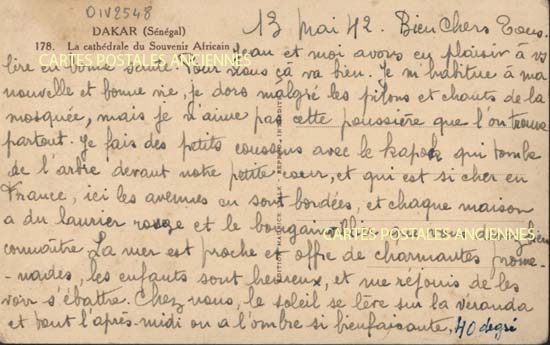 DIV2548
DAKAR (Sénégal)
178. La cathédrale du Souvenir Africain
13 mai 42. Bien Chers Tous.
Jean et moi avons eu plaisir à vs
lire en bonne santé. Pour nous çà va bien. Je m'habitue à ma
nouvelle et bonne vie, je dors malgré les pilons et chants de la
mosquée, mais je n'aime pas cette poussière que l'on trouve
partout. Je fais des petits coussins avec le kapok qui tombe
de l'arbre devant notre petite cour, et qui est si cher en
France, ici les avenues en sont bordées, et chaque maison
a du laurier rouge et le bougainvillier
connaître La mer est proche et offre de charmantes prome-
-nades, les enfants sont heureux, et me réjouis de les
voir s'ébattre. Chez nous, le soleil se lève sur la véranda
et tout l'après-midi on a l'ombre si bienfaisante, 40 degré
CARTES POSTALES ANCIENNES
CARTES POSTALES ANCIENNES